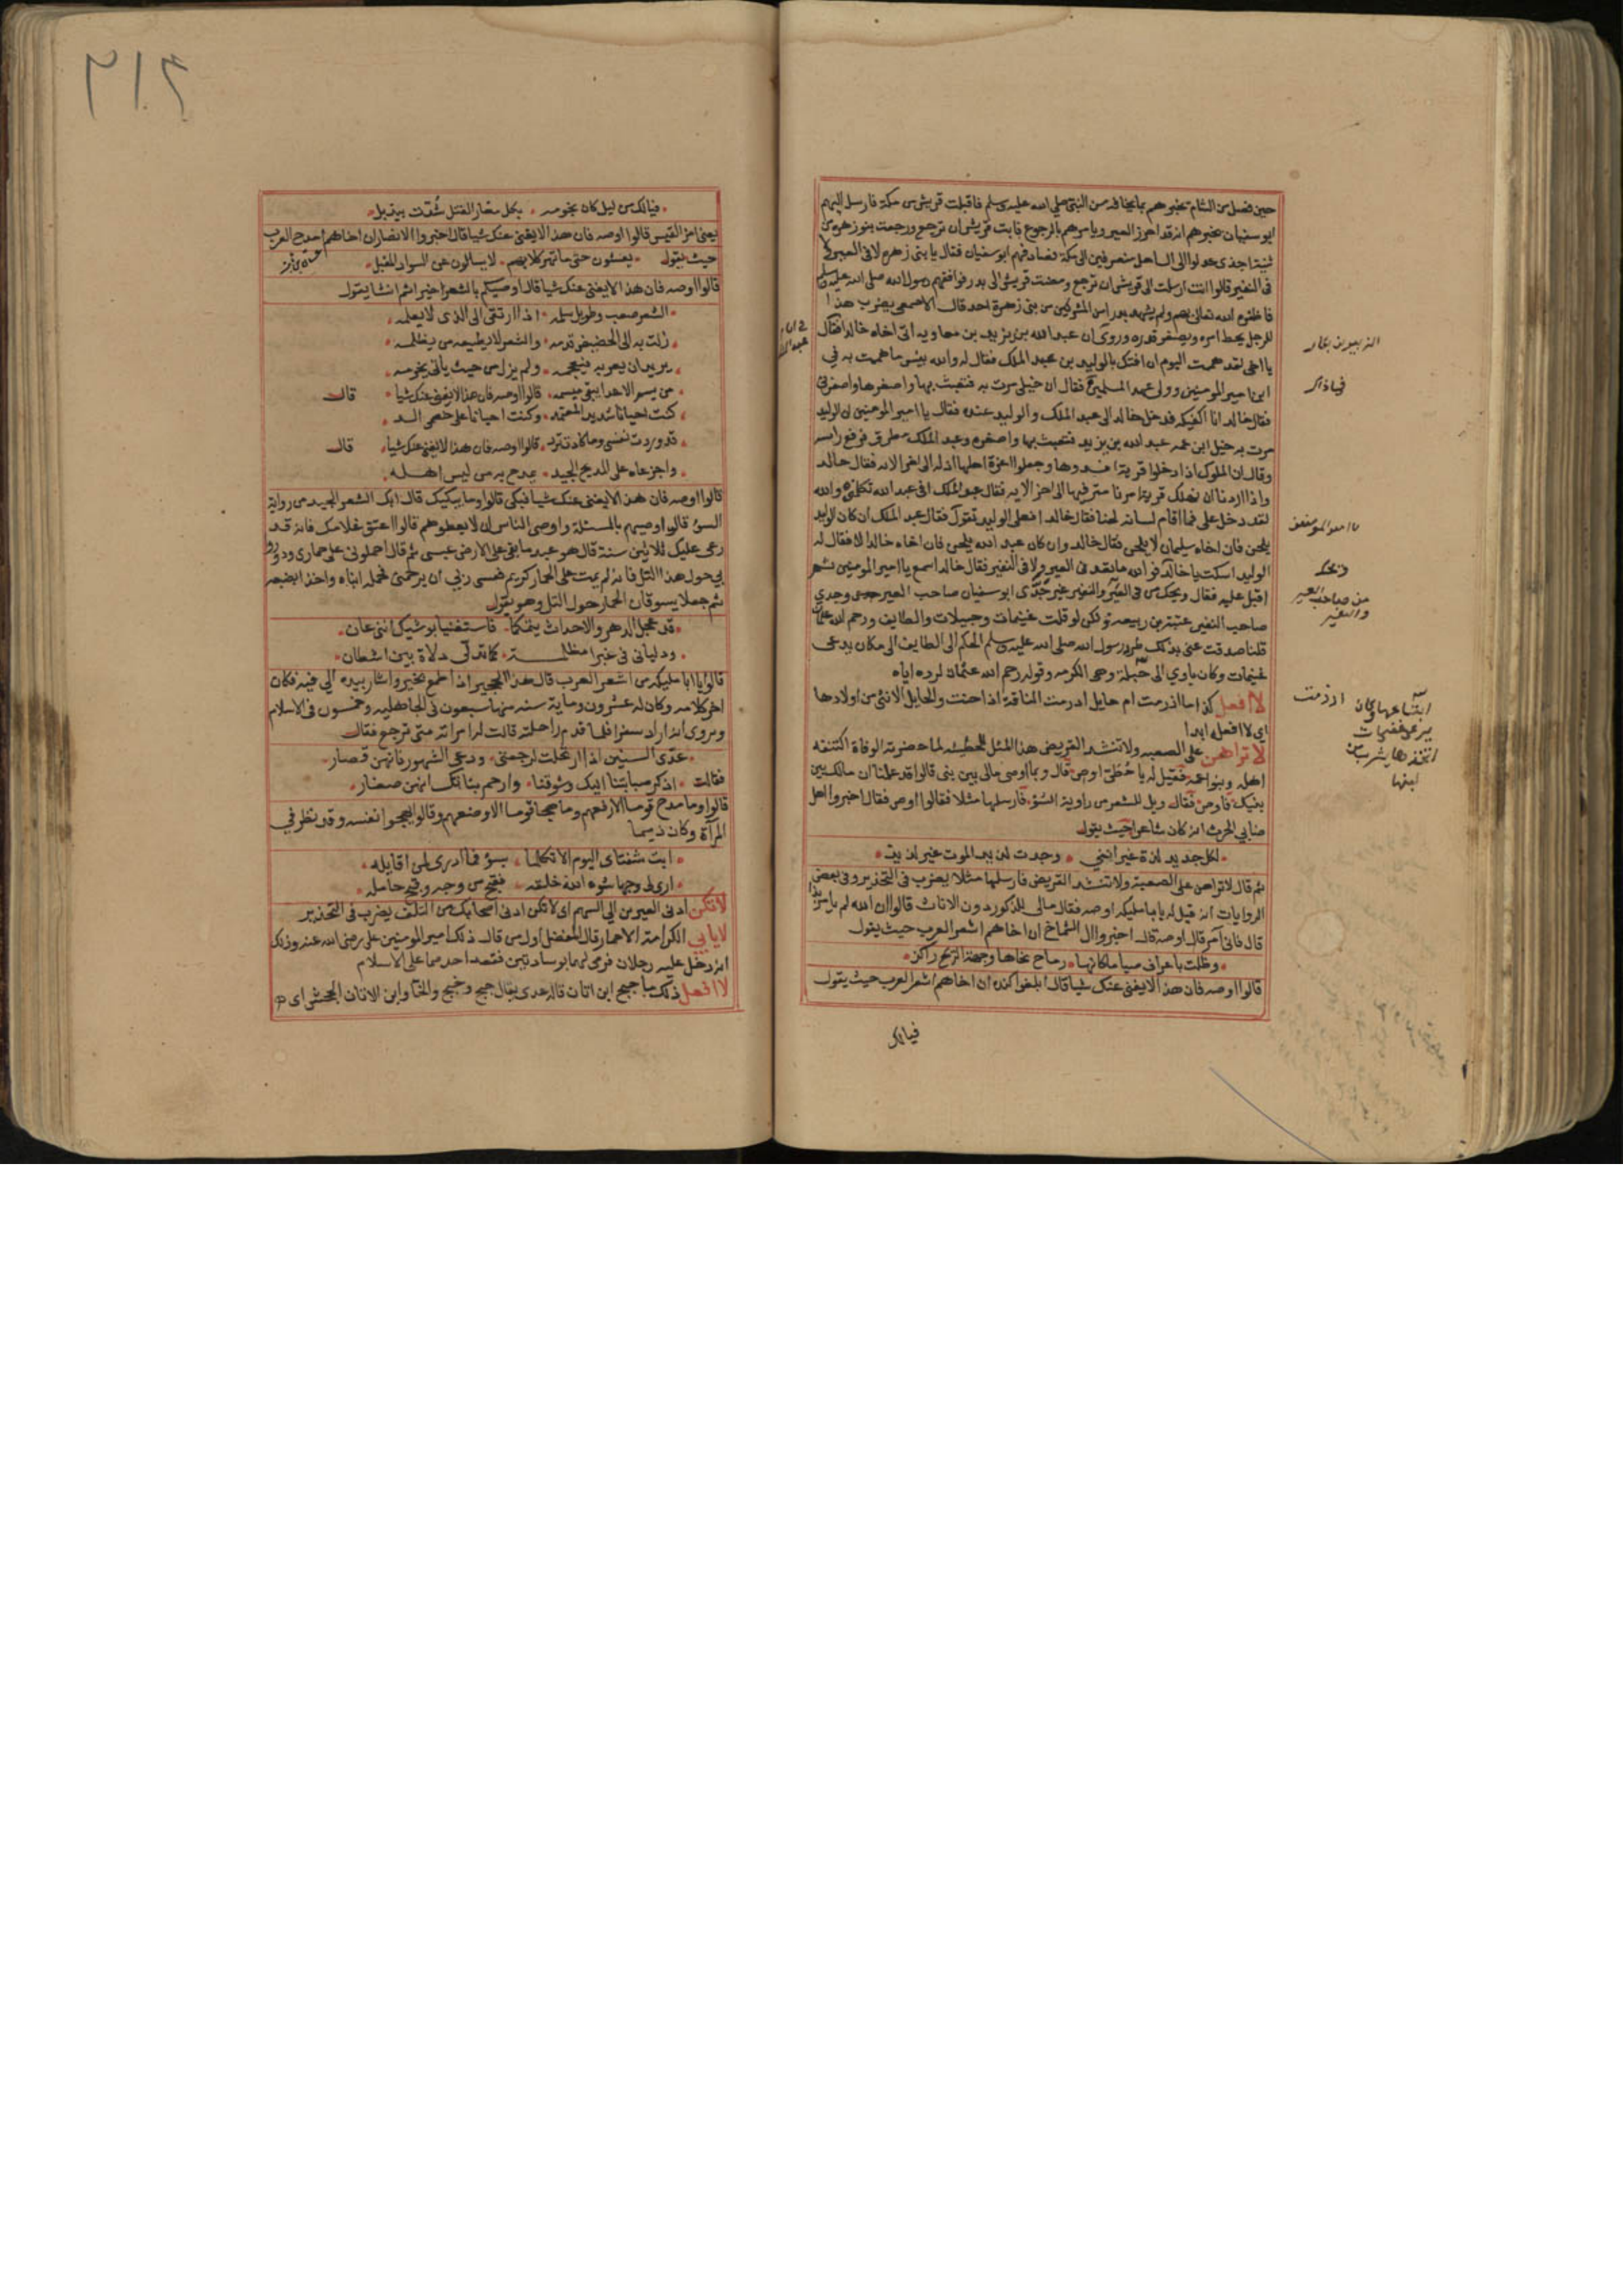 حين فصل من الشام يخبرهم بما يخافه من النبي صلى الله عليه وسلم فاقبلت قريش من مكة فارسل اليهم
ابو سفيان يخبرهم انه قد احرز العير ويامرهم بالرجوع فابت قريش ان ترجع ورجعت بنو زهرة من
ثنية اجدى عدلوا الى الساحل منصرفين الى مكة فصادفهم ابو سفيان فقال يا بني زهرة لا في العير ولا
في النفير قالوا انت ارسلت الى قريش ان ترجع ومضت قريش الى بدر فوافقهم رسول الله صلى الله عليه وسلم
فاظفره الله تعالى بهم ولم يشهد بدرا من المشركين من بني زهرة احد قال الاصمعي يضرب هذا
للرجل يحط امره ويصغر قدره وروى ان عبد الله بن يزيد بن معاوية اتى اخاه خالدا فقال
يا اخى لقد هممت اليوم ان افتك بالوليد بن عبد الملك فقال له والله بيس ما هممت به في
ابن امير المومنين وولى عهد المسلمين فقال ان خيلى مرت به فتعبث بها واصغرها واصغرني
فقال خالد انا اكفيكه فدخل خالد الى عبد الملك والوليد عنده فقال يا امير المومنين ان الوليد
مرت به خيل ابن عمه عبد الله بن يزيد فتعبث بها واصغره وعبد الملك مطرق فرفع راسه
وقال ان الملوك اذا دخلوا قرية افسدوها وجعلوا اعزة اهلها اذلة الى اخر الاية فقال خالد
واذا اردنا ان نهلك قرية امرنا مترفيها الى اخر الاية فقال عبد الملك افى عبد الله تكلمنى والله
لقد دخل على فما اقام لسانه لحنا فقال خالد افعلى الوليد تعول فقال عبد الملك ان كان الوليد
يلحن فان اخاه سليمان لا يلحن فقال خالد وان كان عبد الله يلحن فان اخاه خالد لا فقال له
الوليد اسكت يا خالد فوالله ما تعد في العير ولا في النفير فقال خالد اسمع يا امير المومنين ثم
اقبل عليه فقال ويحك من في العير والنفير غير جدى ابو سفيان صاحب العير جدى وجدي
صاحب النفير عتبة بن ربيعة ولكن لو قلت غنيمات وحبيلات والطايف ورحم الله عثمان
قلنا صدقت عنى بذلك طرد رسول الله صلى الله عليه وسلم الحكم الى الطايف الى مكان يدعى
غنيمات وكان ياوي الى حبلة وهي الكرمة وقوله رحم الله عثمان لرده اياه
لا افعل كذا ما ارزمت ام حايل ارزمت الناقة اذا حنت والحايل الانثى من اولادها
اى لا افعله ابدا
لا تراهن على الصعبة ولا تنشد القريض هذا المثل للحطيئه لما حضرته الوفاة اكتنفه
اهله وبنو عمه فقيل له يا حطئ اوص قال وبما اوصى مالى بين بنى قالوا قد علمنا ان مالك بين
بنيك فاوص فقال ويل للشعر من راوية السؤ فارسلها مثلا فقالوا اوص فقال اخبروا اهل
ضابي بن الحرث انه كان شاعرا حيث يقول
لكل جديد لذة غير اننى وجدت لذيد الموت غير لذيذ
ثم قال لا تراهن على الصعبة ولا تنشد القريض فارسلها مثلا يضرب فى التحذير وفى بعض
الروايات انه قيل له يا ابا مليكه اوصه فقال مالى للذكور دون الاناث قالوا ان الله لم يامر بذا
قال فانى آمر قال اوصه قال اخبروا ال الشماخ ان اخاهم اشعر العرب حيث يقول
وظلت باعراف صياما كانها رماح نحاها وجهة الريح راكز
قالوا اوصه فان هذا لا يغنى عنك شيا قال ابلغوا كنده ان اخاهم اشعر العرب حيث يقول
فيالك
يا امير المومنين
ويحك
من صاحب العير
والنفير
ارزمت
٢١٤
فيالك من ليل كان نجومه بكل مغار الفتل شدت بيذبل
يعنى امرا القيس قالوا اوصه فان هذا لا يغنى عنك شيا قال اخبروا الانصار ان اخاهم امدح العرب
حيث يقول يغشون حتى ما تهر كلابهم لا يسالون عن السواد المقبل
قالوا اوصه فان هذا لا يغنى عنك شيا قال اوصيكم بالشعر خيرا ثم انشا يقول
الشعر صعب وطويل سلمه اذا ارتقى الى الذى لا يعلمه
زلت به الى الحضيض قدمه والشعر لا يطيعه من يظلمه
يريد ان يعربه فيعجمه ولم يزل من حيث ياتى يخرمه
من يسم الاعدا يبقى ميسمه قالوا اوصه فان هذا لا يغنى عنك شيا قال
كنت احيانا شديد المعتمد وكنت احيانا على خصمى الد
قد وردت نفسى وما كادت ترد قالوا اوصه فان هذا لا يغنى عنك شيا قال
واجزعاه على المديح الجيد يمدح به من ليس اهله
قالوا اوصه فان هذا لا يغنى عنك شيا فبكى قالوا وما يبكيك قال ابك الشعر الجيد من رواية
السؤ قالوا اوصيهم بالمسئلة واوصى الناس ان لا يعطوهم قالوا اعتق غلامك فانه قد
رعى عليك ثلاثين سنة قال هو عبد ما بقى على الارض عبسى ثم قال احملونى على حمارى ودوروا
بي حول هذا التل فانه لم يمت على الحمار كريم فعسى ربي ان يرحمنى فحمله ابناه واخذا بضبعيه
ثم جعلا يسوقان الحمار حول التل وهو يقول
قد عجل الدهر والاحداث يتمكما فاستغنيا بوشيك اننى عان
ودليانى فى غبرا مظلمة كما تدلى دلاة بين اشطان
قالوا يا ابا مليكه من اشعر العرب قال هذا الجحير اذا طمع بخير واشار بيده الى فيه فكان
اخر كلامه وكان له عشرون وماية سنه منها سبعون فى الجاهليه وخمسون فى الاسلام
ويروى انه اراد سفرا فلما قدم راحلته قالت له امراته متى ترجع فقال
عدى السنين اذا ارتحلت لرجعتى ودعى الشهور فانهن قصار
فقالت اذكر صبابتنا اليك وشوقنا وارحم بناتك انهن صغار
قالوا وما مدح قوما الا رفعهم وما هجا قوما الا وضعهم وقالوا ليهجوا نفسه وقد نظر في
المرآة وكان ذميما
ابت شفتاى اليوم الا تكلما بسؤ فما ادرى لمن اقايله
ارى لى وجها شوه الله خلقه فقبح من وجه وقبح حامله
لا تكن ادنى العيرين الى السهم اى لا تكن ادنى اصحابك من التلف يضرب فى التحذير
لا يابى الكرامة الا حمار قال المفضل اول من قال ذلك امير المومنين على رضى الله عنه وذلك
انه دخل عليه رجلان فرمى لهما بوسادتين فقعد احدهما على الاسلام
لا افعل ذلك ما جبح ابن اتان قاله عدى يقال جبح وخبج والخا وابن الاتان الجحش اى